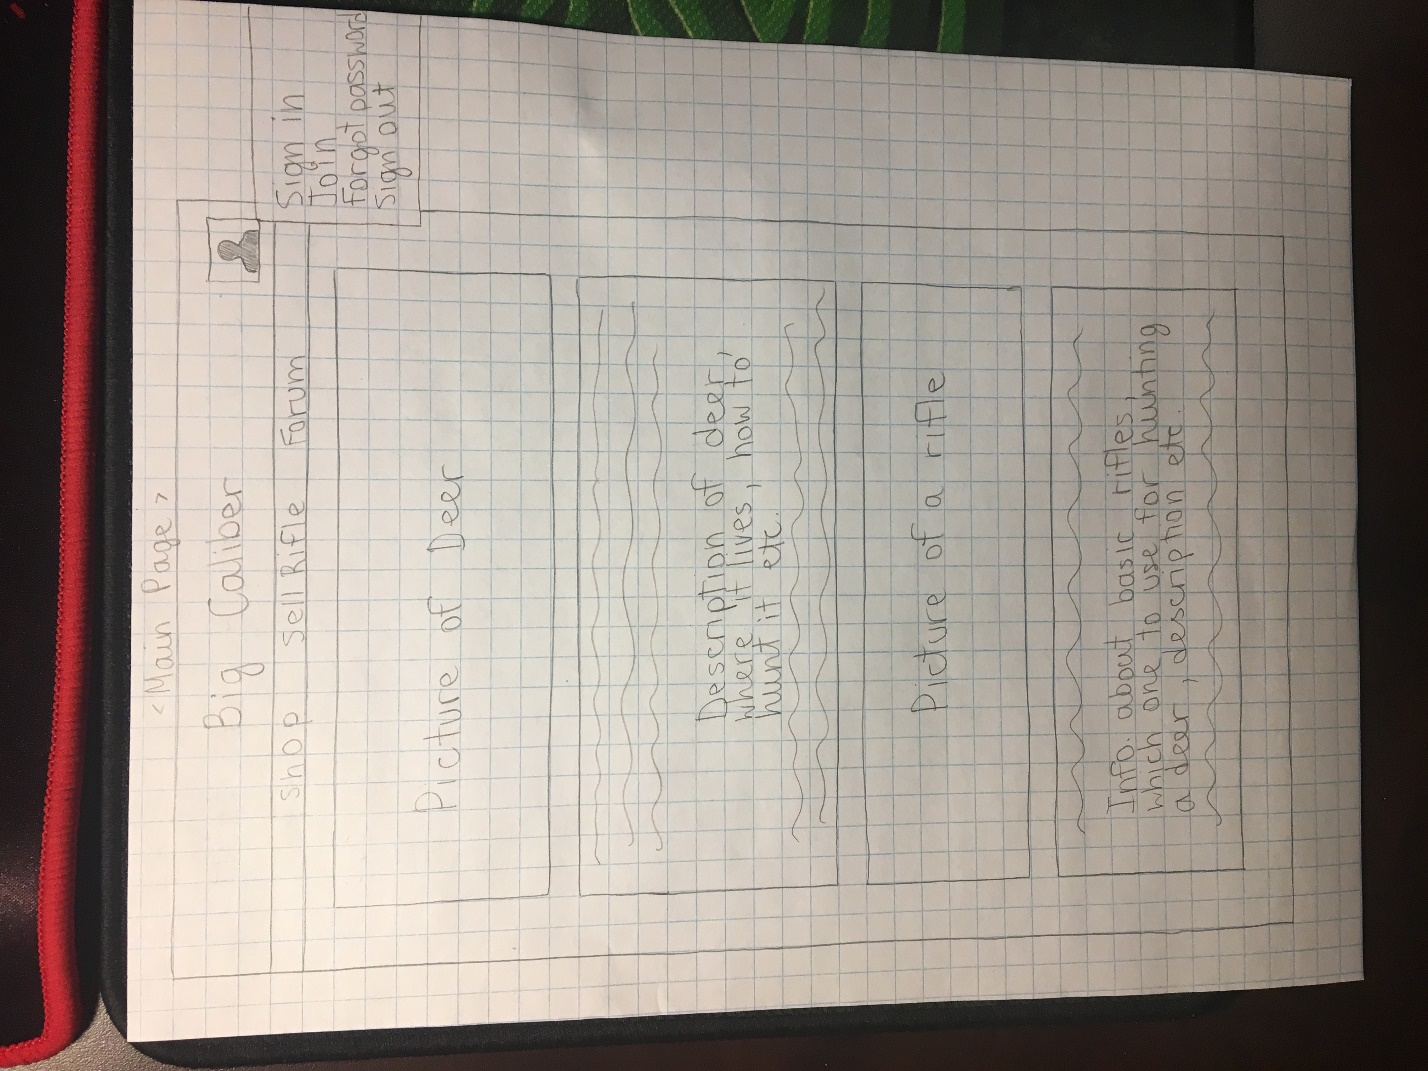 <Main Page>
Big Caliber
Shop Sell Rifle Forum
Sign in
Join
Forgot password
Sign out
Picture of Deer
Description of deer,
where it lives, how to
hunt it etc.
Picture of a rifle
Info. about basic rifles,
which one to use for hunting
a deer, description etc.